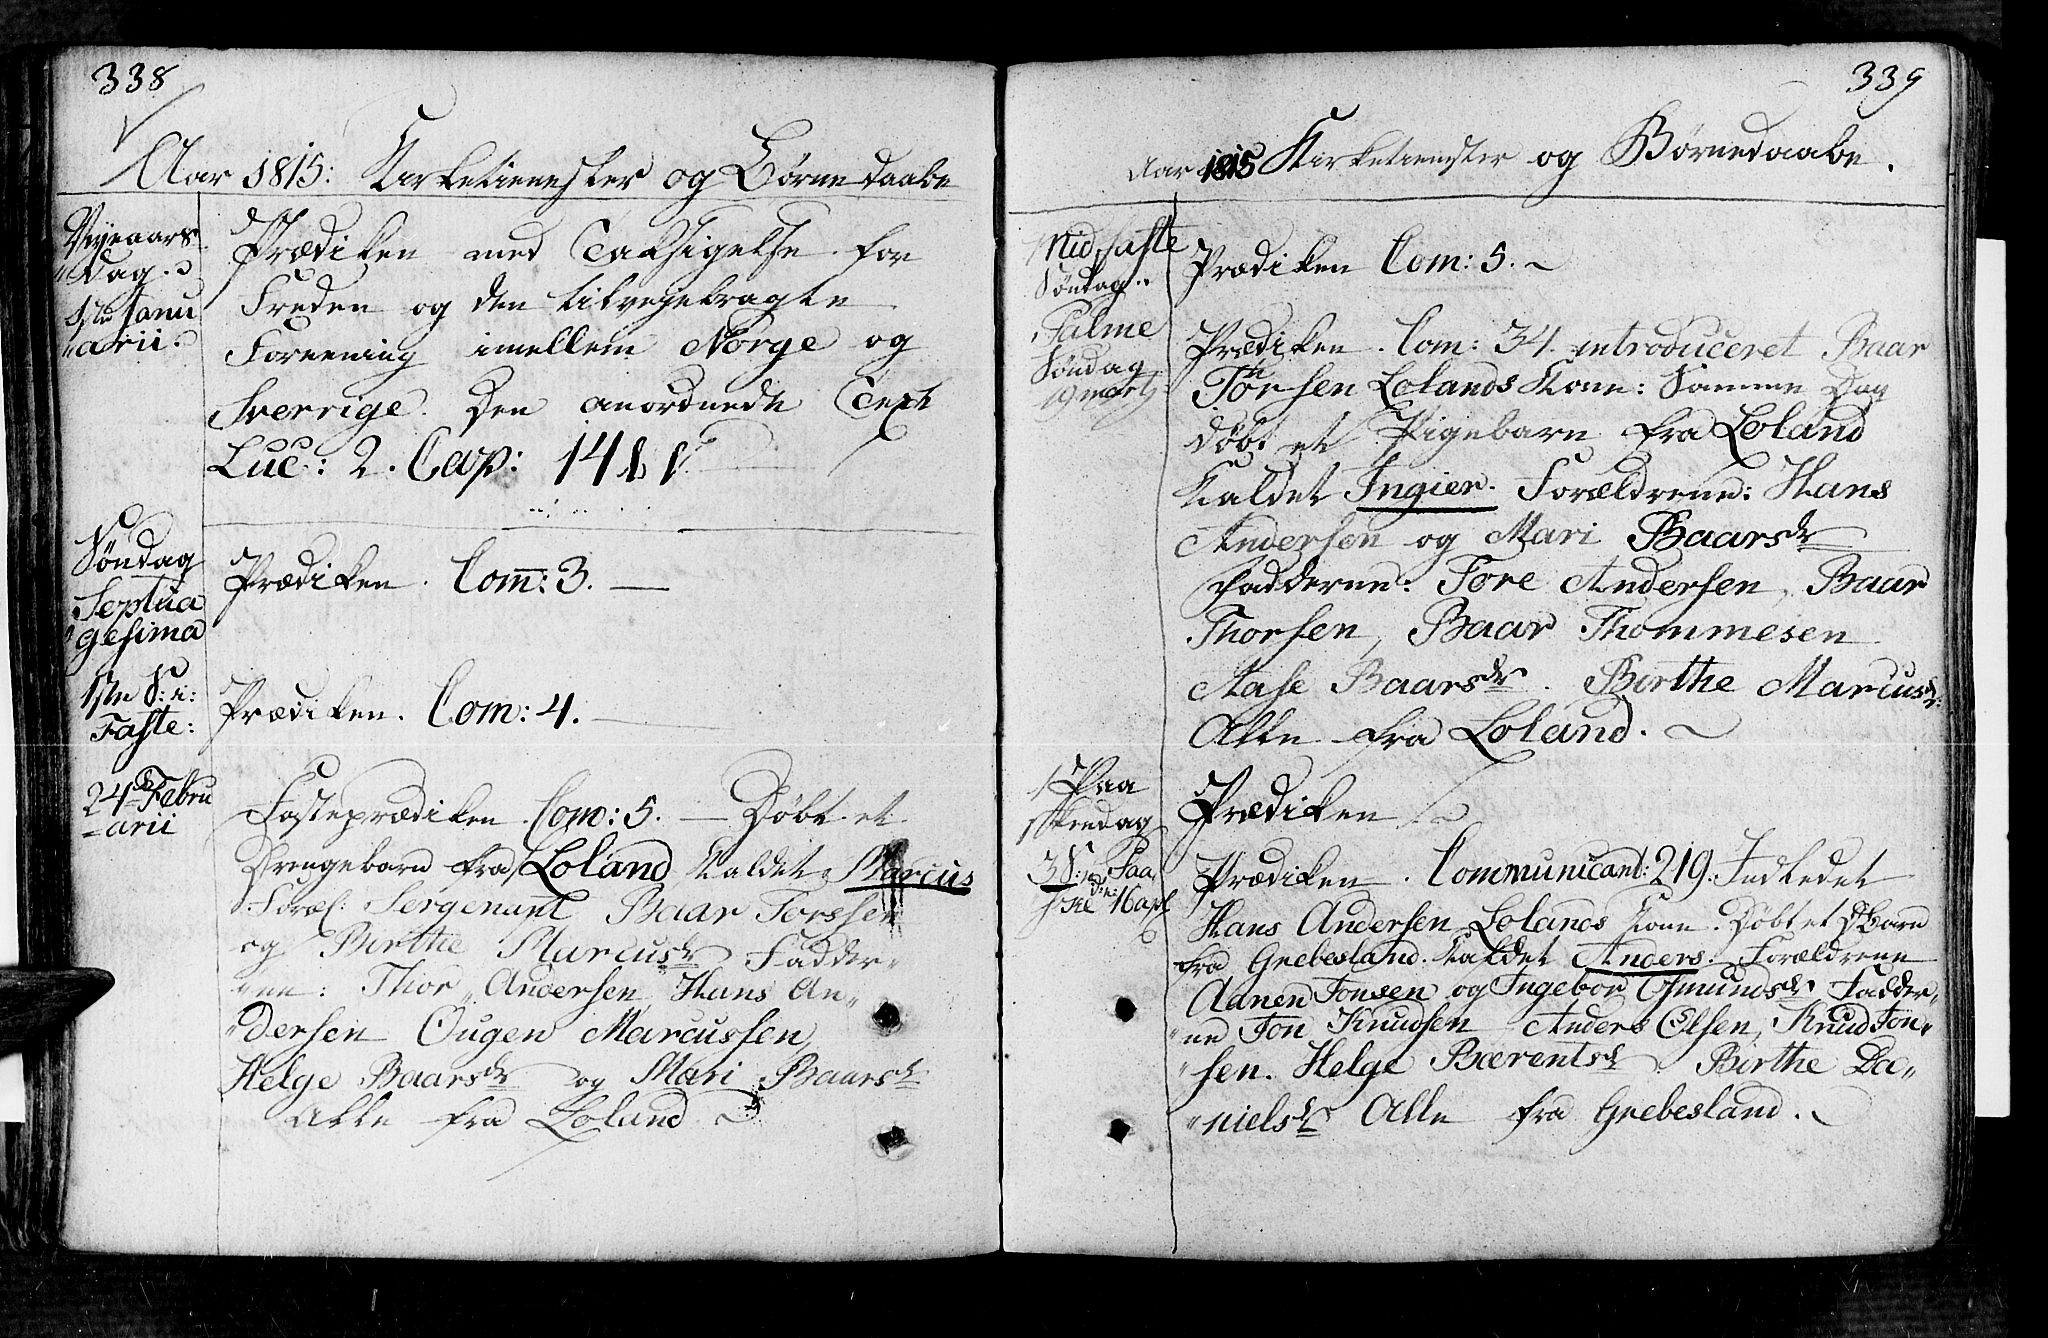 338
Aar 1815: Kirketienester og Børnedaabe
Nyeaars
Dag.
1ste Janu
arii.
Prædiken med Taksigelse for
Freden og den tilvejebragte
Foreening imellem Norge og
Sverrige. Den anordnede Text
Luc: 2. Cap: 14
Søndag
Septua
gesima
Prædiken. Com: 3. —
1ste S: i:
Faste:
Prædiken. Com: 4. —
24de Febru
arii
Fasteprædiken. Com: 5. — Døbt et
Drengebarn fra Loland kaldet Marcus
Foræl: Sergenant Baar Torssen
og Birthe Marcusdr Fadder„
„ne: Thor Andersen Hans An„
„dersen Ougen Marcussen,
Helge Baarsdr og Mari Baarsdr
Alle fra Loland.
339
Aar 1815 Kirketienester og Børnedaabe.
Midfaste
Søndag.
Prædiken Com: 5. ~
Palme
Søndag
19 marts
Prædiken. Com: 34. introduceret Baar
Torsen Lolands Kone: Samme Dag
døbt et Pigebarn fra Loland
Kaldet Ingier. Forældrene: Hans
Andersen og Mari Baarsdr
Fadderne: Tore Andersen, Baar
Thorsen, Baar Thommesen
Aase Baarsdr. Birthe Marcusdr:
Alle fra Loland. ~
1 Paa
skedag
Prædiken ~
3 S: Paa
ske d: 16 apl
Prædiken. Communicant: 219. Indledet
Hans Andersen Lolands Kone. Døbt et D Barn
fra Grebesland. Kaldet Anders. Forældrene
Aanen Jonsen og Ingebor Osmundsdr Fadder„
„ne Jon Knudsen Anders Olsen, Knud Jon„
„sen. Helge Bærentsdr Birthe Da„
„nielsdr Alle fra Grebesland. ~